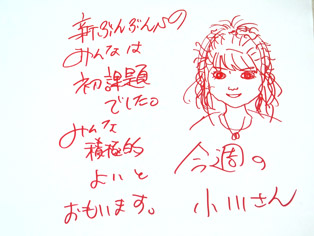 新ぶんぶんの
みんなは
初課題
でした。
みんな
積極的
よいと
おもいます。
今週の
小川さん